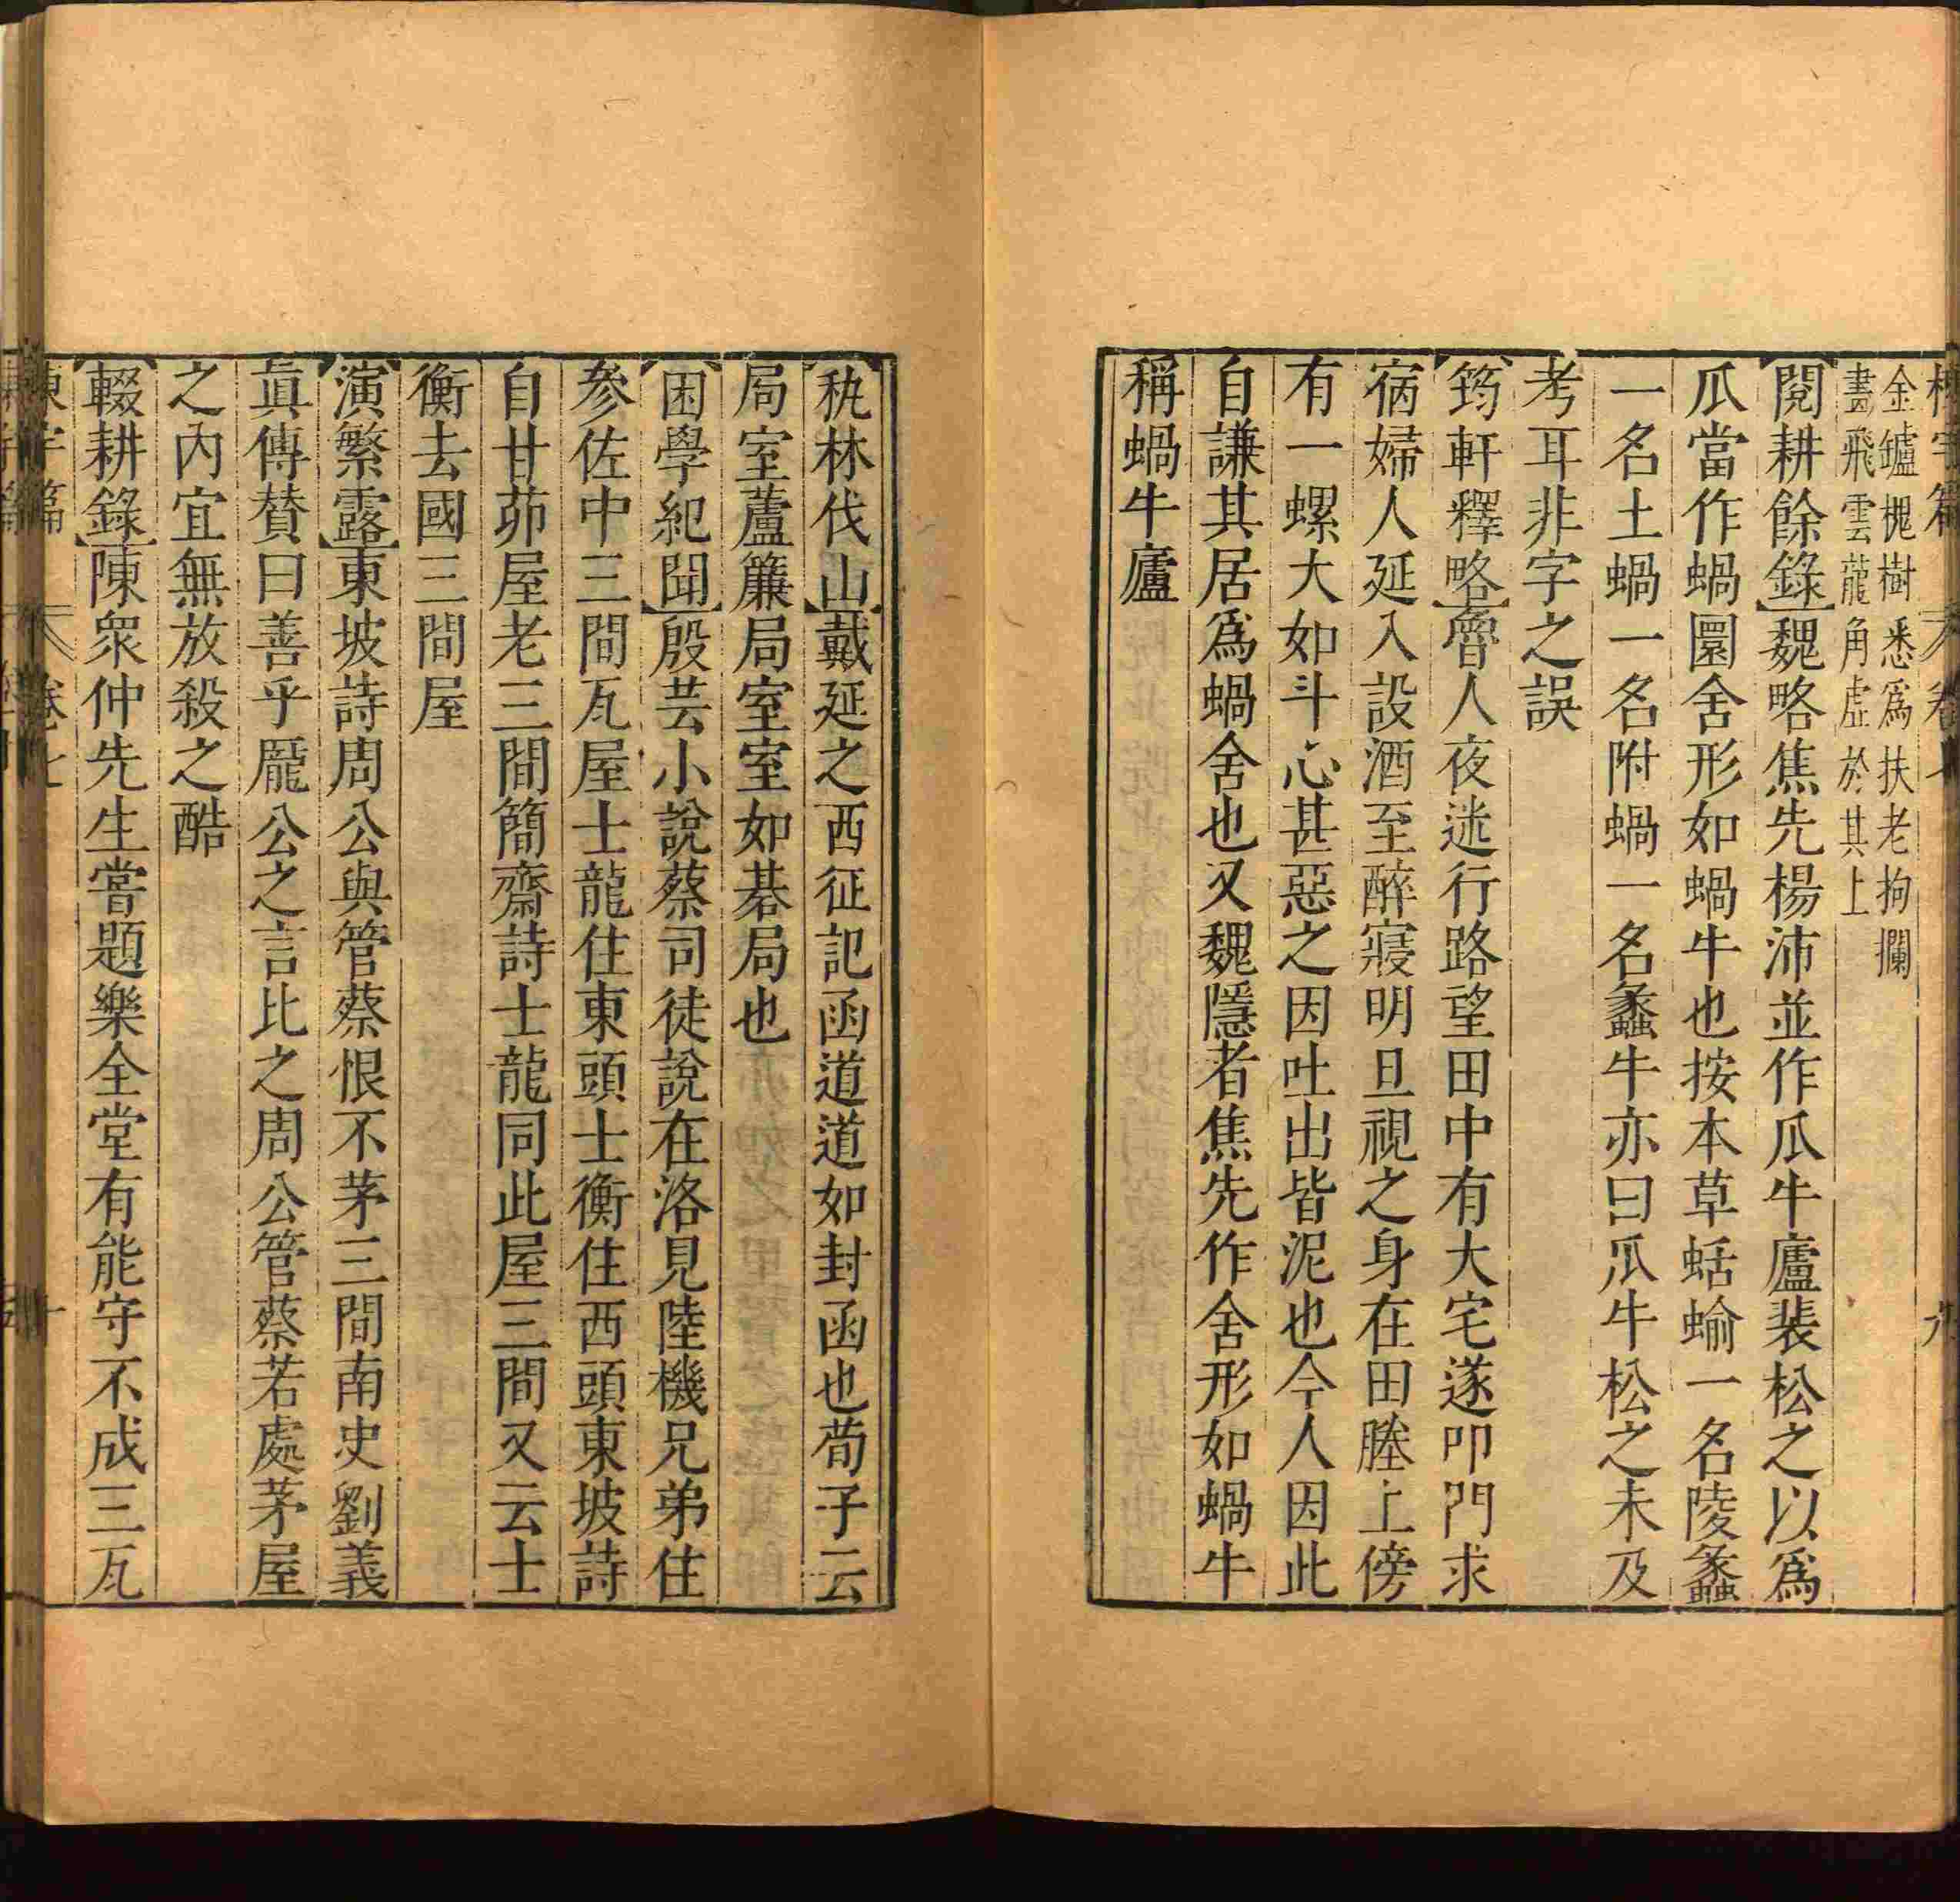 金鑪槐樹悉爲扶老拘攔
畫飛雲龍角虛於其上
閱耕餘錄魏略焦先楊沛並作瓜牛廬裴松之以爲
瓜當作蝸圜舍形如蝸牛也按本草蛞蝓一名陵蠡
一名土蝸一名附蝸一名蠡牛亦曰瓜牛松之未及
考耳非字之誤
筠軒釋略魯人夜迷行路望田中有大宅遂叩門求
宿婦人延入設酒至醉寢明旦視之身在田塍上傍
有一螺大如斗心甚惡之因吐出皆泥也今人因此
自謙其居爲蝸舍也又魏隱者焦先作舍形如蝸牛
稱蝸牛廬
秇林伐山戴延之西征記函道道如封函也荀子云
局室蘆簾局室室如碁局也
困學紀聞殷芸小說蔡司徒說在洛見陸機兄弟住
参佐中三間瓦屋士龍住東頭士衡住西頭東坡詩
自甘茆屋老三間簡齋詩士龍同此屋三間又云士
衡去國三間屋
演繁露東坡詩周公與管蔡恨不茅三間南史劉義
眞傳賛曰善乎龎公之言比之周公管蔡若處茅屋
之內宜無放殺之酷
輟耕錄陳衆仲先生嘗題樂全堂有能守不成三瓦
棟宇篇 卷七 十